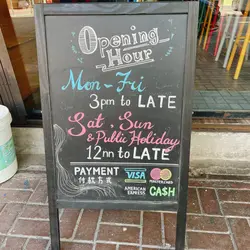 Opening
Hour
Mon - Fri
3pm to LATE
Sat, Sun
& Public Holiday
12nn to LATE
PAYMENT
付款方式
VISA
MasterCard
AMERICAN
EXPRESS
CA$H